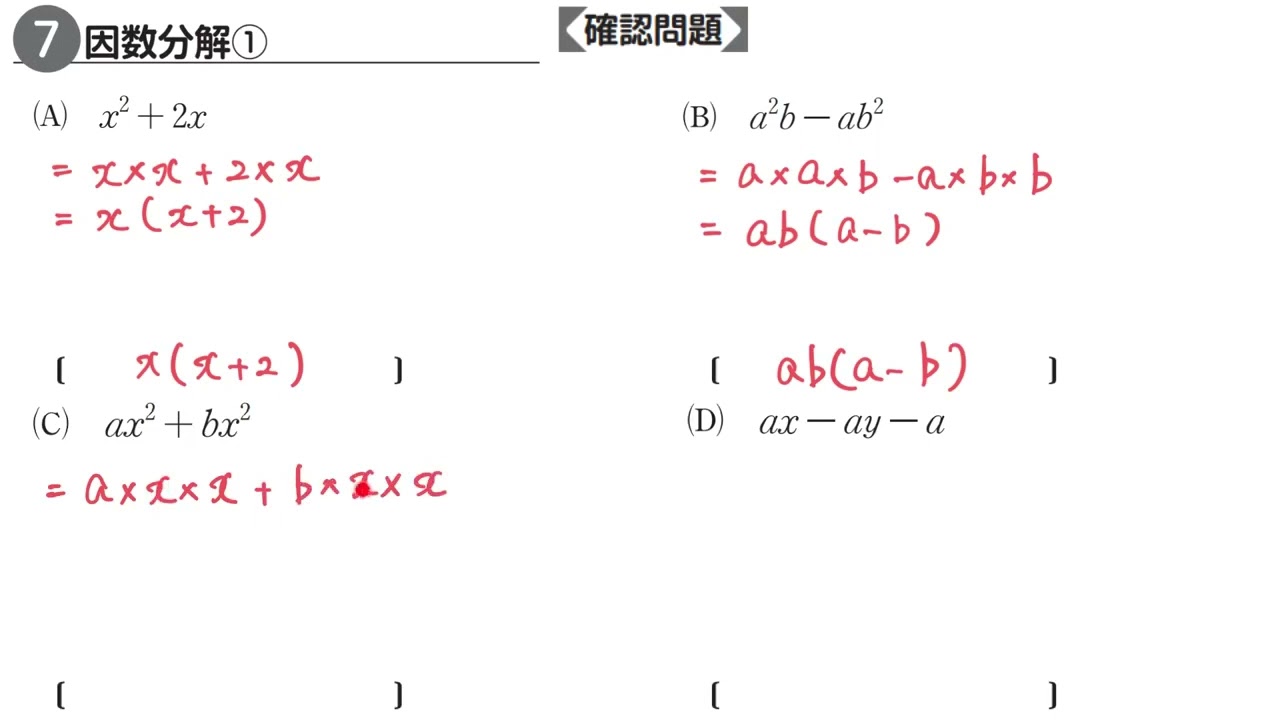 7 因数分解①
確認問題
(A) x² + 2x
= x × x + 2 × x
= x(x+2)
[ x(x+2) ]
(B) a²b − ab²
= a × a × b − a × b × b
= ab(a−b)
[ ab(a−b) ]
(C) ax² + bx²
= a × x × x + b × x × x
[ ]
(D) ax − ay − a
[ ]